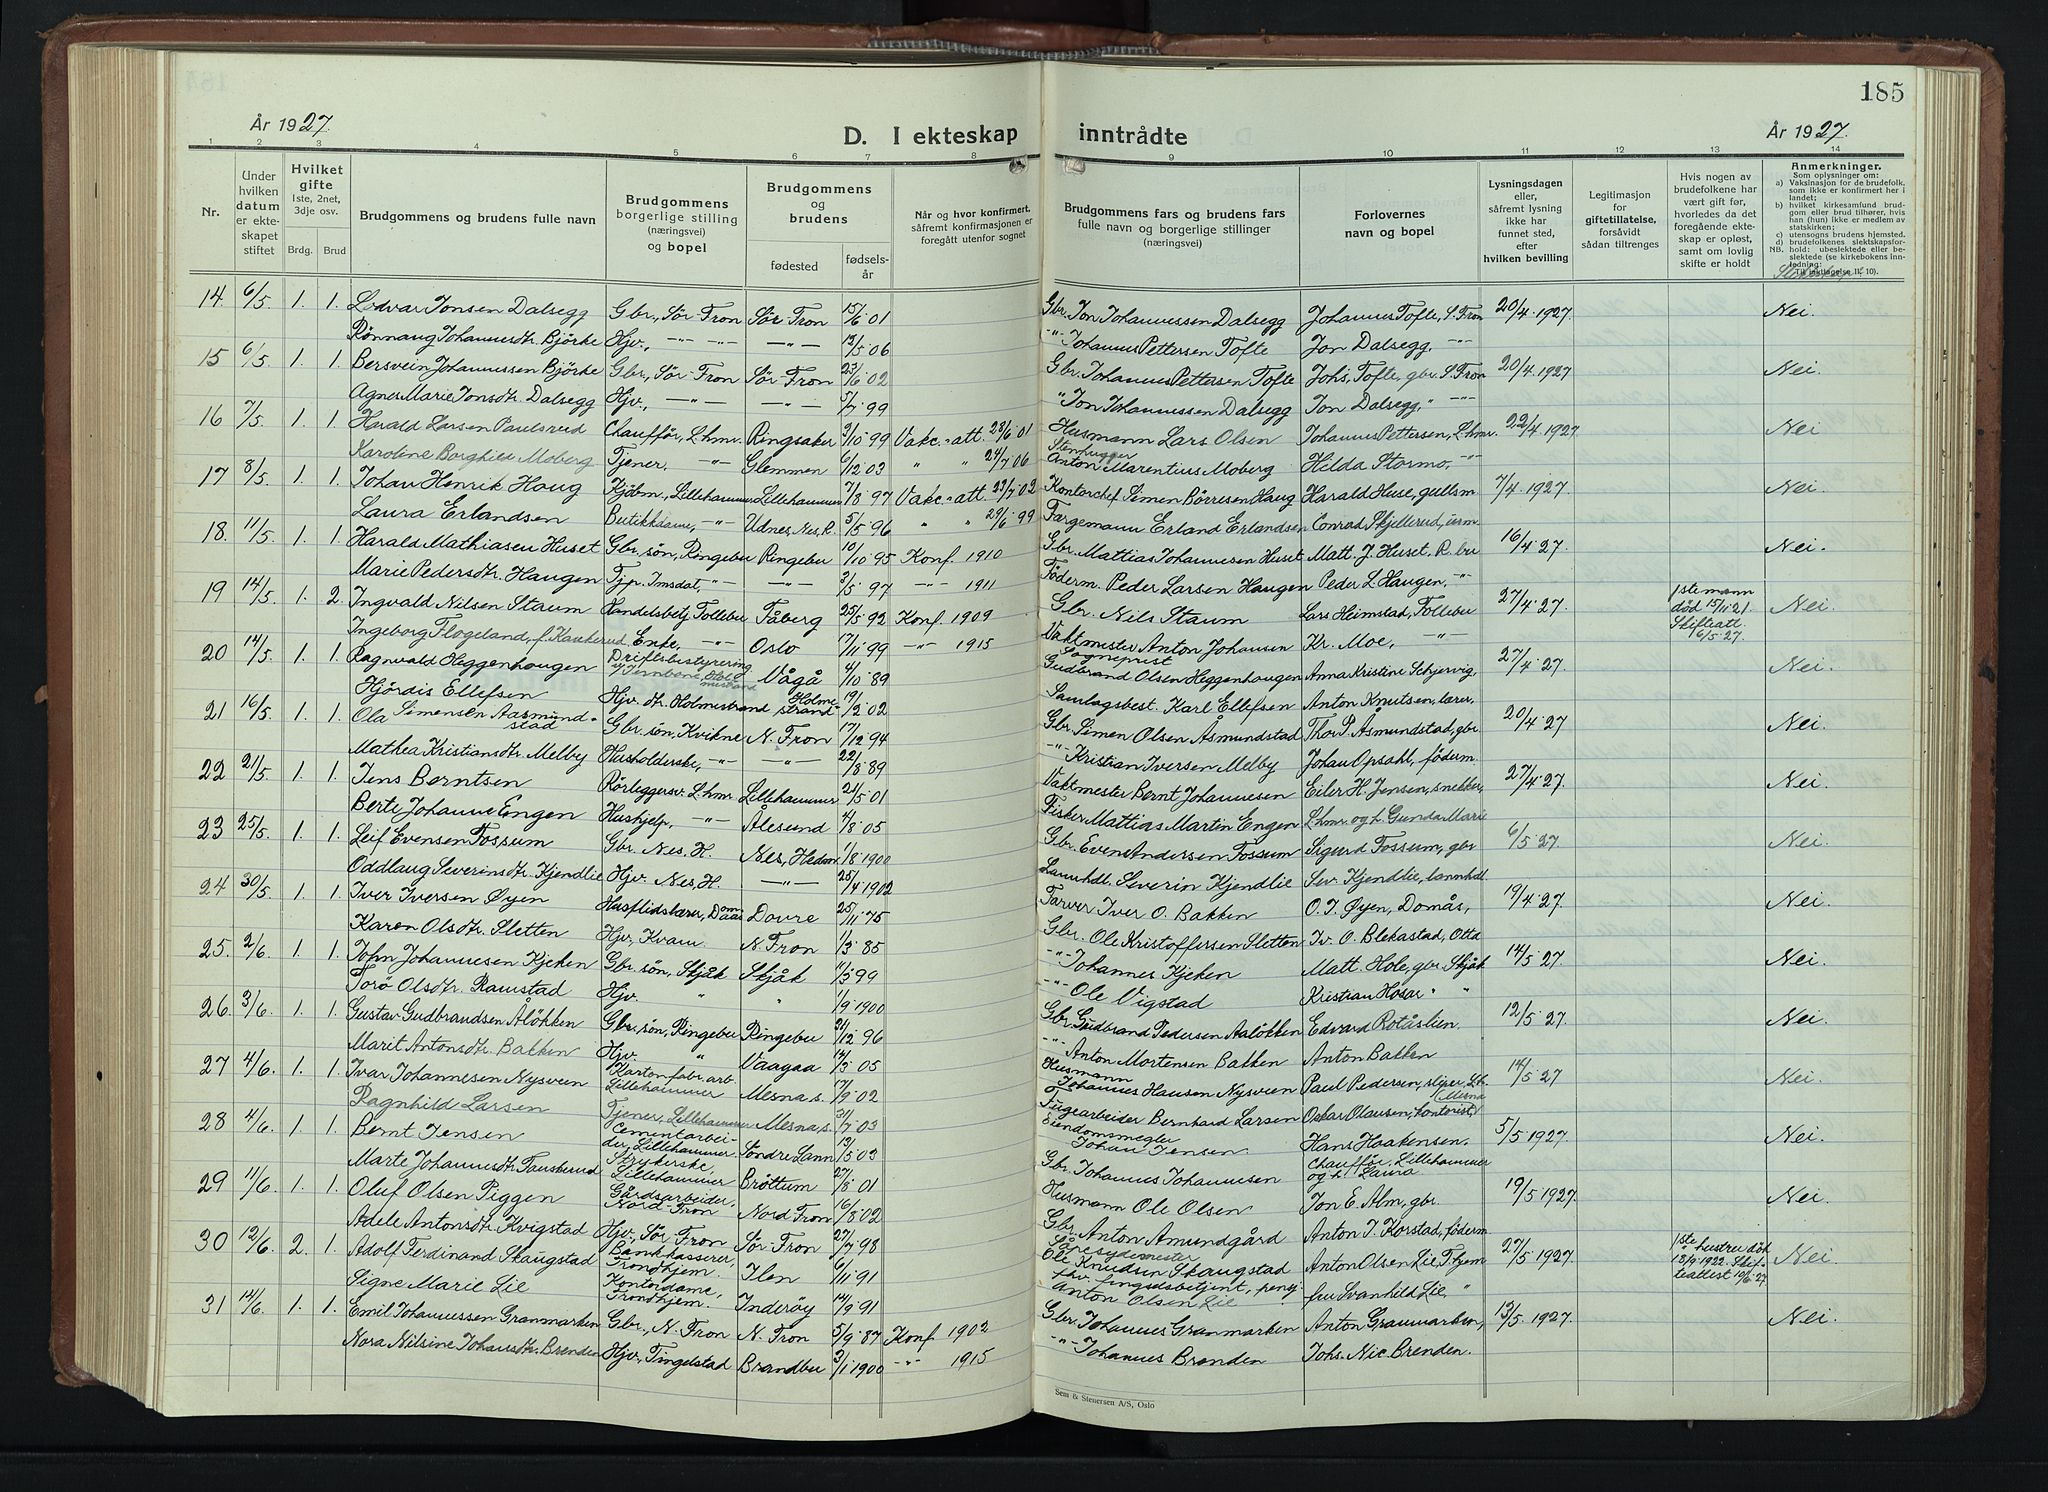 185
År 1927.
D. I ekteskap inntrådte
År 1927.
1 2 3 4 5 6 7 8 9 10 11 12 13 14
Nr.
Under hvilken datum er ekteskapet stiftet
Hvilket gifte 1ste, 2net, 3dje osv.
Brdg. Brud
Brudgommens og brudens fulle navn
Brudgommens borgerlige stilling (næringsvei) og bopel
Brudgommens og brudens
fødested
fødsels-år
Når og hvor konfirmert, såfremt konfirmasjonen er foregått utenfor sognet
Brudgommens fars og brudens fars fulle navn og borgerlige stillinger (næringsvei)
Forlovernes navn og bopel
Lysningsdagen eller, såfremt lysning ikke har funnet sted, efter hvilken bevilling
Legitimasjon for giftetillatelse, forsåvidt sådan tiltrenges
Hvis nogen av brudefolkene har vært gift før, hvorledes da det foregående ekteskap er opløst, samt om lovlig skifte er holdt
Anmerkninger.
Som oplysninger om:
a) Vaksinasjon for de brudefolk, som ikke er konfirmert her i landet;
b) hvilket kirkesamfund brudgom eller brud tilhører, hvis han (hun) ikke er medlem av statskirken;
c) utensogns brudens hjemsted.
d) brudefolkenes slektskapsforhold: ubeslektede eller beslektede (se kirkebokens innledning: Til inntagelse II, 10).
NB.
14 6/5. 1. 1. Lodvar Jonsen Dalsegg Gbr., Sör-Fron Sör-Fron 15/6 01 Gbr. Jon Johannessen Dalsegg Johannes Tofte, S. Fron 20/4 1927. Nei.
Rönnaug Johannesdtr. Björke Hjv., -"- -"- -"- 12/5 06 -"- Johannes Pettersen Tofte Jon Dalsegg, -"-
15 6/5. 1. 1. Bersvein Johannessen Björke Gbr., Sör-Fron Sör-Fron 23/6 02 Gbr. Johannes Pettersen Tofte Johs. Tofte, gbr. S. Fron 20/4 1927. Nei.
Agnes Marie Jonsdtr. Dalsegg Hjv., -"- -"- 5/7 99 " Jon Johannessen Dalsegg Jon Dalsegg, " -"-
16 7/5. 1. 1. Harald Larsen Paulsrud Chaufför, L.hmr. Ringsaker 3/10 99 Vakc.-att. 28/6 01 Husmann Lars Olsen Johannes Pettersen, L.hmr. 22/4 1927. Nei
Karoline Borghild Moberg Tjener, -"- Glemmen 6/12 03 " " 24/7 06 Stenhugger Anton Marentius Moberg Hilda Stormo, -"-
17 8/5. 1. 1. Johan Henrik Haug Kjöbm., Lillehammer Lillehammer 7/8 97 Vakc.-att. 23/7 02 Kontorchef Simen Börresen Haug Harald Huse, gullsm. 7/4 1927. Nei
Laura Erlandsen Butikkdame, -"- Udnes, Nes, R. 5/5 96 " " 29/6 99 Fargemann Erland Erlandsen Conrad Skjellerud, urm.
18. 11/5. 1. 1. Harald Mathiasen Huset Gbr. sön, Ringebu Ringebu 10/10 95 Konf. 1910 Gbr. Mattias Johannesen Huset Matt. J. Huset, R.bu 16/4 27. Nei.
Marie Pedersdtr. Haugen Tjp. Imsdal, -"- -"- 3/5 97 -"- 1911 Föderm. Peder Larsen Haugen Peder L. Haugen, -"-
19 14/5. 1. 2. Ingvald Nilsen Staum Handelsbestj. Follebu Fåberg 25/5 92 Konf. 1909 Gbr. Nils Staum Lars Heimstad, Follebu 27/4 27. 1ste mann död 15/11 21. Skifteatt. 6/5 27. Nei.
Ingeborg Flogeland, f. Kankerud Enke, -"- Oslo 17/11 99 -"- 1915 Vaktmester Anton Johansen Kr. Moe, -"-
20 14/5. 1. 1. Ragnvald Heggenhougen Driftsbestyrer v/ Jernbane, Holmestrand Vågå 4/10 89 Sogneprest Gudbrand Olsen Heggenhougen Anna Kristine Schjervig, 27/4 27. Nei.
Hjördis Ellefsen Hjv. dtr. Holmestrand Holmestrand 19/2 02 Samlagsbest. Karl Ellefsen Anton Knutsen, lærer,
21 16/5. 1. 1. Ola Simensen Aasmundstad Gbr. sön, Kvikne N. Fron 17/12 94 Gbr. Simen Olsen Åsmundstad Thor P. Åsmundstad, gbr. 20/4 27 Nei.
Mathea Kristiansdtr. Melby Husholderske, -"- -"- 22/8 89 -"- Kristian Iversen Melby Johan Opsahl, föderm.
22 21/5. 1. 1. Jens Berntsen Rörleggersv. L.hmr. Lillehammer 21/5 01 Vaktmester Bernt Johannesen Eiler H. Jensen, snekker, 27/4 27. Nei.
Berte Johanne Engen Hushjelp, -"- Ålesund 4/8 05 Fisker Mattias Martin Engen L.hmr. og h. Gunda Marie
23 25/5. 1. 1. Leif Evensen Fossum Gbr. Nes, H. Nes, Hedm. 1/8 1900 Gbr. Even Andersen Fossum Sigurd Fossum, gbr 6/5 27. Nei.
Oddlaug Severinsdtr. Kjendlie Hjv. Nes, H. -"- 25/4 1902 Lannhdl. Severin Kjendlie Sev. Kjendlie, lannhdl
24 30/5. 1. 1. Iver Iversen Øyen Husflidslærer, Domaas Dovre 25/11 75 Farver Iver O. Bakken O. I. Øyen, Domås, 19/4 27. Nei.
Karen Olsdtr. Sletten Hjv, Kvam N. Fron 1/3 85 Gbr. Ole Kristoffersen Sletten Iv. O. Blekastad, Otta
25. 2/6. 1. 1. John Johannesen Kjeken Gbr. sön, Skjåk Skjåk 11/3 99 -"- Johannes Kjeken Matt. Hole, gbr. Skjåk 14/5 27. Nei.
Torö Olsdtr. Ramstad Hjv. " " 1/9 1900 -"- Ole Vigstad Kristian Hosar " "
26 3/6. 1. 1. Gustav Gudbrandsen Åløkken Gbr. sön, Ringebu Ringebu 21/12 96 Gbr. Gudbrand Pedersen Aaløkken Edvard Rotåslien. 12/5 27. Nei.
Marit Antonsdtr. Bakken Hjv. " Vaagaa 14/3 05 -"- Anton Mortensen Bakken Anton Bakken
27 4/6. 1. 1. Ivar Johannesen Nysveen Kartonfabr. arb. Lillehammer Mesna s. 17/9 02 Husmann Johannes Hansen Nysveen Paul Pedersen, sliper, Lh. 14/5 27 Nei.
Ragnhild Larsen Tjener, Lillehammer Mesna s. 31/7 03 Fugearbeider Bernhard Larsen Oskar Olausen, kontorist, Mesna
28 4/6. 1. 1. Bernt Jensen Cementarbeider, Lillehammer. Söndre Lann 13/5 03 Eiendomsmegler Johan Jensen Hans Haakensen. 5/5 1927. Nei.
Marte Johannesdtr. Fauskerud Strykerske, Lillehammer Bröttum 27/8 01 Gbr. Johannes Johannesen Chaufför, Lillehammer og h. Laura
29 11/6. 1. 1. Oluf Olsen Piggen Gårdsarbeider, Nord-Fron Nord Fron 16/8 02 Husmann Ole Olsen Jon E. Alm, gbr. 19/5 1927. Nei.
Adele Antonsdtr. Kvigstad Hjv., Sör-Fron Sör-Fron 27/7 98 Gbr. Anton Amundgård Anton J. Korstad, föderm
30 12/6. 2. 1. Adolf Ferdinand Skaugstad Bankkasserer, Trondhjem. Ilen 6/11 91 Ole Knudsen Skaugstad Anton Olsen Lie, T.hjem 27/5 1927. 1ste hustru död 18/9 1922. Skifteattest 10/6 27. Nei.
Signe Marie Lie Kontordame, Trondhjem. Inderöy 14/9 91 fhv. fengselsbetjent, pensj. Anton Olsen Lie fru Svanhild Lie "
31 14/6. 1. 1. Emil Johannessen Granmarken Gbr., N. Fron N. Fron 5/9 87 Konf. 1902 Gbr. Johannes Granmarken Anton Granmarken, 13/5 1927. Nei.
Nora Nilsine Johansdtr. Brenden Hjv., Tingelstad Brandbu 3/1 1900 -"- 1915 -"- Johannes Brenden Johs. Nic. Brenden.
Sem & Stenersen A/S, Oslo